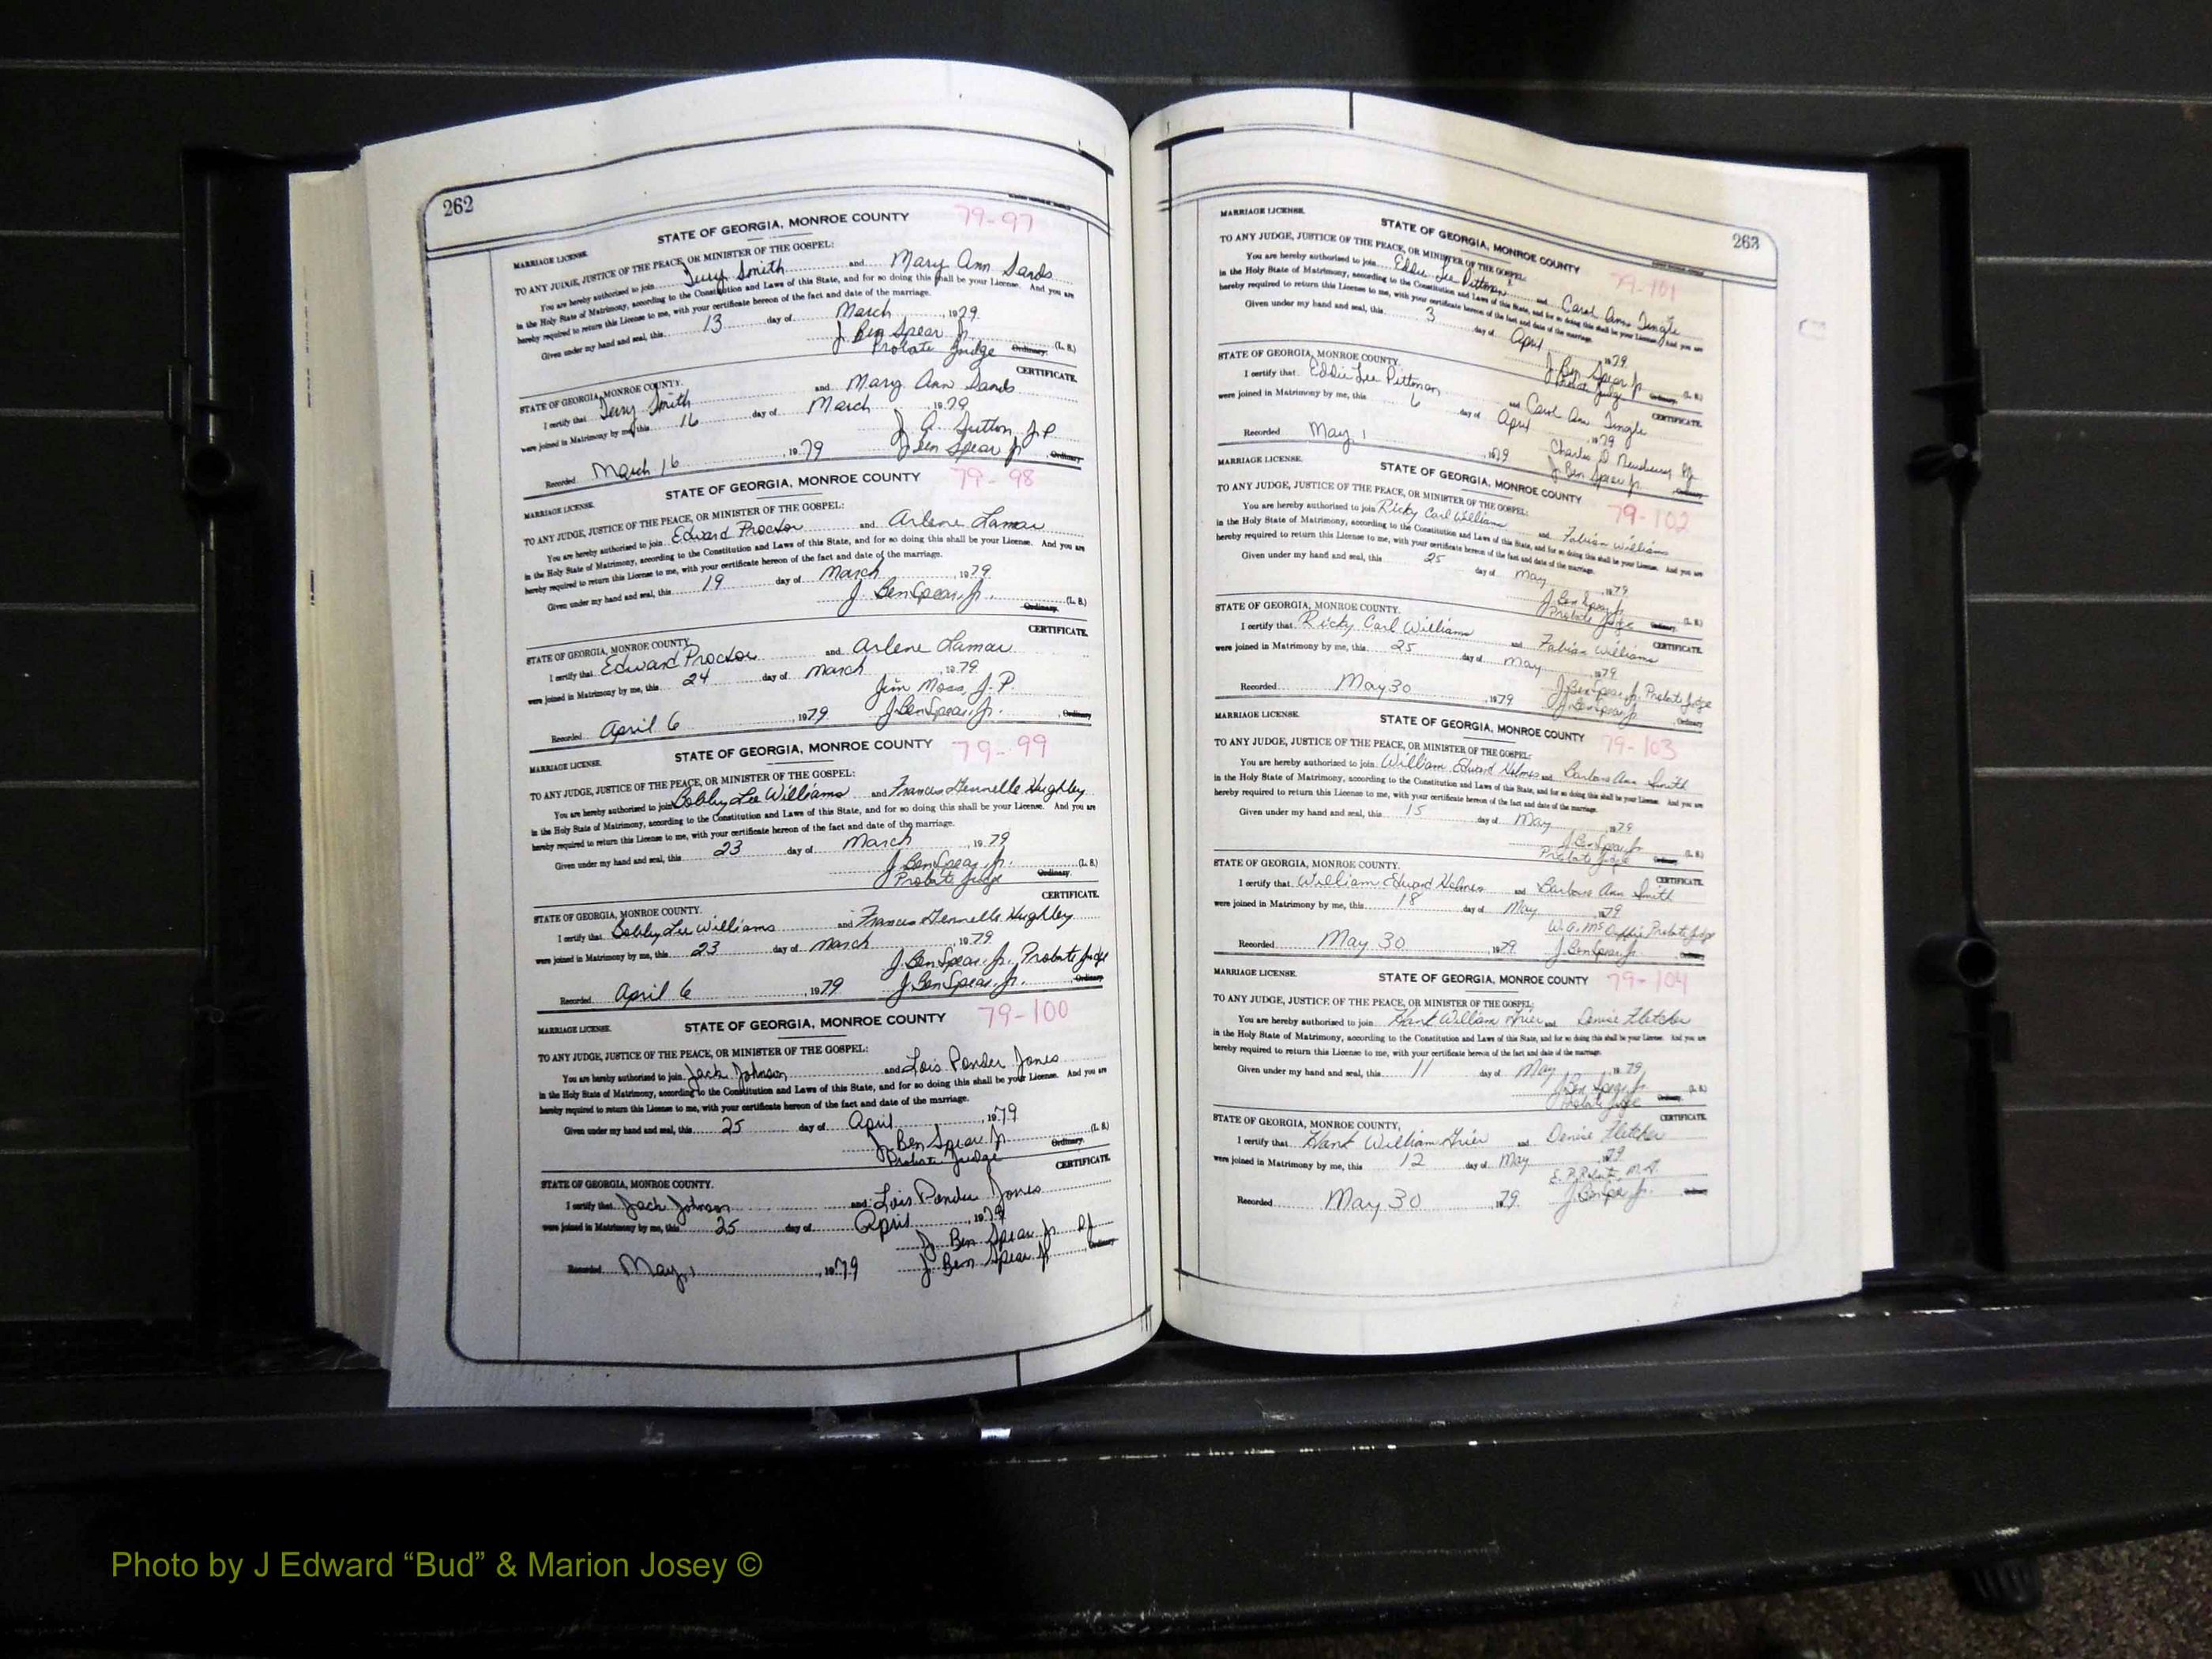 262
STATE OF GEORGIA, MONROE COUNTY 79-97
MARRIAGE LICENSE.
TO ANY JUDGE, JUSTICE OF THE PEACE, OR MINISTER OF THE GOSPEL:
You are hereby authorised to join Terry Smith and Mary Ann Sands
in the Holy State of Matrimony, according to the Constitution and Laws of this State, and for so doing this shall be your License. And you are
hereby required to return this License to me, with your certificate hereon of the fact and date of the marriage.
Given under my hand and seal, this 13 day of March, 1979
J. Ben Spear Jr. (L. S.)
Probate Judge Ordinary.
CERTIFICATE.
STATE OF GEORGIA, MONROE COUNTY.
I certify that Terry Smith and Mary Ann Sands
were joined in Matrimony by me, this 16 day of March 1979
J. A. Sutton J.P.
Recorded March 16, 1979 J Ben Spear Jr, Ordinary
STATE OF GEORGIA, MONROE COUNTY 79-98
MARRIAGE LICENSE.
TO ANY JUDGE, JUSTICE OF THE PEACE, OR MINISTER OF THE GOSPEL:
You are hereby authorised to join Edward Proctor and Arlene Lamar
in the Holy State of Matrimony, according to the Constitution and Laws of this State, and for so doing this shall be your License. And you are
hereby required to return this License to me, with your certificate hereon of the fact and date of the marriage.
Given under my hand and seal, this 19 day of March, 1979
J. Ben Spear, Jr. (L. S.)
Ordinary.
CERTIFICATE.
STATE OF GEORGIA, MONROE COUNTY.
I certify that Edward Proctor and Arlene Lamar
were joined in Matrimony by me, this 24 day of March 1979
Jim Moss, J.P.
Recorded April 6, 1979 J. Ben Spear, Jr., Ordinary
STATE OF GEORGIA, MONROE COUNTY 79-99
MARRIAGE LICENSE.
TO ANY JUDGE, JUSTICE OF THE PEACE, OR MINISTER OF THE GOSPEL:
You are hereby authorised to join Bobby Lee Williams and Francis Hughley
in the Holy State of Matrimony, according to the Constitution and Laws of this State, and for so doing this shall be your License. And you are
hereby required to return this License to me, with your certificate hereon of the fact and date of the marriage.
Given under my hand and seal, this 23 day of March, 1979
J. Ben Spear, Jr. (L. S.)
Probate Judge Ordinary.
CERTIFICATE.
STATE OF GEORGIA, MONROE COUNTY.
I certify that Bobby Lee Williams and Francis Hughley
were joined in Matrimony by me, this 23 day of March, 1979
J. Ben Spear, Jr., Probate Judge
Recorded April 6, 1979 J. Ben Spear, Jr. Ordinary
STATE OF GEORGIA, MONROE COUNTY 79-100
MARRIAGE LICENSE.
TO ANY JUDGE, JUSTICE OF THE PEACE, OR MINISTER OF THE GOSPEL:
You are hereby authorised to join Jack Johnson and Lois Ponder Jones
in the Holy State of Matrimony, according to the Constitution and Laws of this State, and for so doing this shall be your License. And you are
hereby required to return this License to me, with your certificate hereon of the fact and date of the marriage.
Given under my hand and seal, this 25 day of April, 1979
J. Ben Spear Jr. (L. S.)
Probate Judge Ordinary.
CERTIFICATE.
STATE OF GEORGIA, MONROE COUNTY.
I certify that Jack Johnson and Lois Ponder Jones
were joined in Matrimony by me, this 25 day of April, 1979
J. Ben Spear Jr PJ
Recorded May 1, 1979 J. Ben Spear Jr Ordinary
263
MARRIAGE LICENSE.
STATE OF GEORGIA, MONROE COUNTY 79-101
TO ANY JUDGE, JUSTICE OF THE PEACE, OR MINISTER OF THE GOSPEL:
You are hereby authorised to join Eddie Lee Pittman and Carol Ann Tingle
in the Holy State of Matrimony, according to the Constitution and Laws of this State, and for so doing this shall be your License. And you are
hereby required to return this License to me, with your certificate hereon of the fact and date of the marriage.
Given under my hand and seal, this 3 day of April 1979
J. Ben Spear Jr. (L. S.)
Probate Judge Ordinary.
STATE OF GEORGIA, MONROE COUNTY. CERTIFICATE.
I certify that Eddie Lee Pittman and Carol Ann Tingle
were joined in Matrimony by me, this 6 day of April 1979
Charles D. Newberry PJ
Recorded May 1, 1979 J. Ben Spear Jr. Ordinary
MARRIAGE LICENSE.
STATE OF GEORGIA, MONROE COUNTY 79-102
TO ANY JUDGE, JUSTICE OF THE PEACE, OR MINISTER OF THE GOSPEL:
You are hereby authorised to join Ricky Carl Williams and Fabian Williams
in the Holy State of Matrimony, according to the Constitution and Laws of this State, and for so doing this shall be your License. And you are
hereby required to return this License to me, with your certificate hereon of the fact and date of the marriage.
Given under my hand and seal, this 25 day of May, 1979
J. Ben Spear Jr (L. S.)
Probate Judge Ordinary.
STATE OF GEORGIA, MONROE COUNTY. CERTIFICATE.
I certify that Ricky Carl Williams and Fabian Williams
were joined in Matrimony by me, this 25 day of May, 1979
J. Ben Spear Jr. Probate Judge
Recorded May 30, 1979 J. Ben Spear Jr Ordinary
MARRIAGE LICENSE.
STATE OF GEORGIA, MONROE COUNTY 79-103
TO ANY JUDGE, JUSTICE OF THE PEACE, OR MINISTER OF THE GOSPEL:
You are hereby authorised to join William Edward Helmes and Barbara Ann Smith
in the Holy State of Matrimony, according to the Constitution and Laws of this State, and for so doing this shall be your License. And you are
hereby required to return this License to me, with your certificate hereon of the fact and date of the marriage.
Given under my hand and seal, this 15 day of May, 1979
J. Ben Spear Jr (L. S.)
Probate Judge Ordinary.
STATE OF GEORGIA, MONROE COUNTY. CERTIFICATE.
I certify that William Edward Helmes and Barbara Ann Smith
were joined in Matrimony by me, this 18 day of May, 1979
W. G. Probate Judge
Recorded May 30, 1979 J. Ben Spear Jr. Ordinary
MARRIAGE LICENSE.
STATE OF GEORGIA, MONROE COUNTY 79-104
TO ANY JUDGE, JUSTICE OF THE PEACE, OR MINISTER OF THE GOSPEL:
You are hereby authorised to join Hank William Grier and Denise Fletcher
in the Holy State of Matrimony, according to the Constitution and Laws of this State, and for so doing this shall be your License. And you are
hereby required to return this License to me, with your certificate hereon of the fact and date of the marriage.
Given under my hand and seal, this 11 day of May, 1979
J. Ben Spear Jr (L. S.)
Probate Judge Ordinary.
STATE OF GEORGIA, MONROE COUNTY, CERTIFICATE.
I certify that Hank William Grier and Denise Fletcher
were joined in Matrimony by me, this 12 day of May, 1979
Recorded May 30, 1979 J. Ben Spear Jr. Ordinary
Photo by J Edward “Bud” & Marion Josey ©